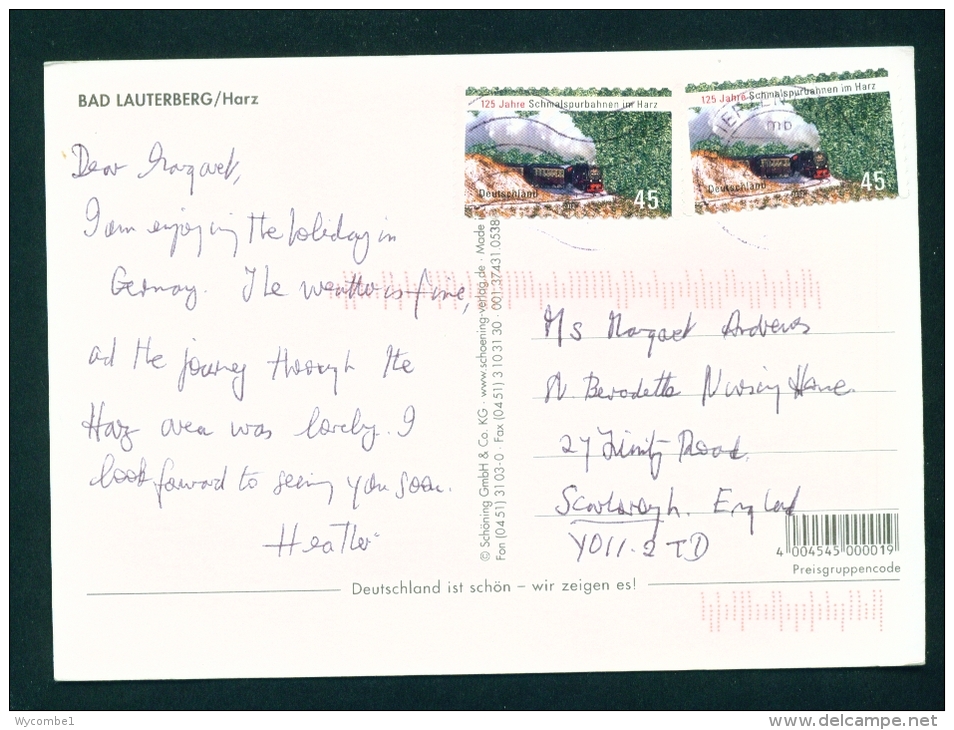 BAD LAUTERBERG/Harz
Dear Margaret,
I am enjoying the holiday in
Germany. The weather is fine,
ad the journey through the
Harz area was lovely. I
look forward to seeing you soon.
Heather
125 Jahre Schmalspurbahnen im Harz
Deutschland
45
125 Jahre Schmalspurbahnen im Harz
Deutschland
45
© Schöning GmbH & Co. KG · www.schoening-verlag.de · Made
Fon (04 51) 31 03-0 · Fax (04 51) 3 10 31 30 · 001.37431.0538
M/s Margaret Andrews
Bernadette Nursing Home.
27 Trinity Road,
Scarborough. England
YO11.2TD
4 004545 000019
Preisgruppencode
Deutschland ist schön – wir zeigen es!
Wycombe1
www.delcampe.net